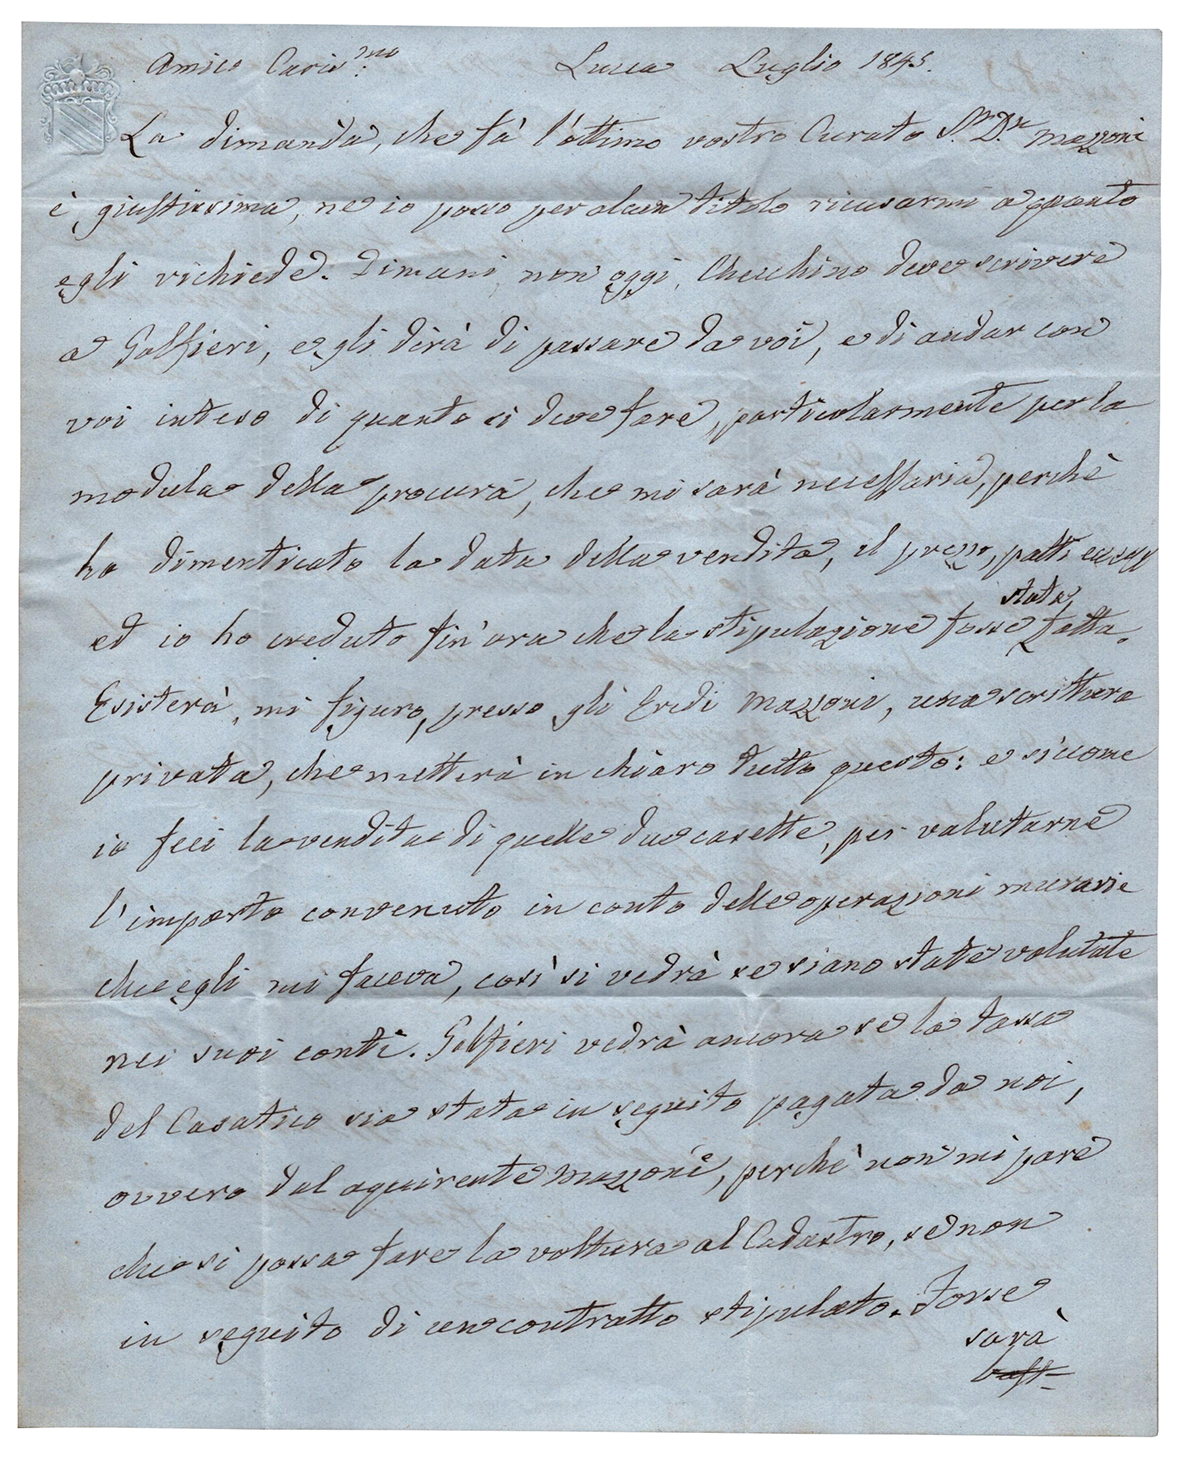 Amico Caris.mo Lucca Luglio 1845.
La dimanda, che fà l'ottimo vostro Curato S.r D.r Mazzoni
è giustissima, ne io posso per alcun titolo ricusarmi a quanto
egli richiede. Dimani, non oggi, Checchino deve scrivere
a Golfieri, e gli dirà di passare da voi, e di andar con
voi inteso di quanto si deve fare, particolarmente per la
modula della procura, che mi sarà necessaria, perchè
ho dimenticato la data della vendita, il prezzo, patti
ed io ho creduto fin'ora che la stipulazione fosse stata fatta.
Esisterà, mi figuro, presso gli Eredi Mazzoni, una scrittura
privata, che metterà in chiaro tutto questo: e siccome
io feci la vendita di quelle due casette, per valutarne
l'importo convenuto in conto delle operazioni murarie
che egli mi faceva, così si vedrà se siano state valutate
nei suoi conti. Golfieri vedrà ancora se la tassa
del Casatico sia stata in seguito pagata da noi,
ovvero dal aquirente Mazzoni, perchè non mi pare
che si possa fare la voltura al Cadastro, se non
in seguito di un contratto stipulato. Forse
sarà